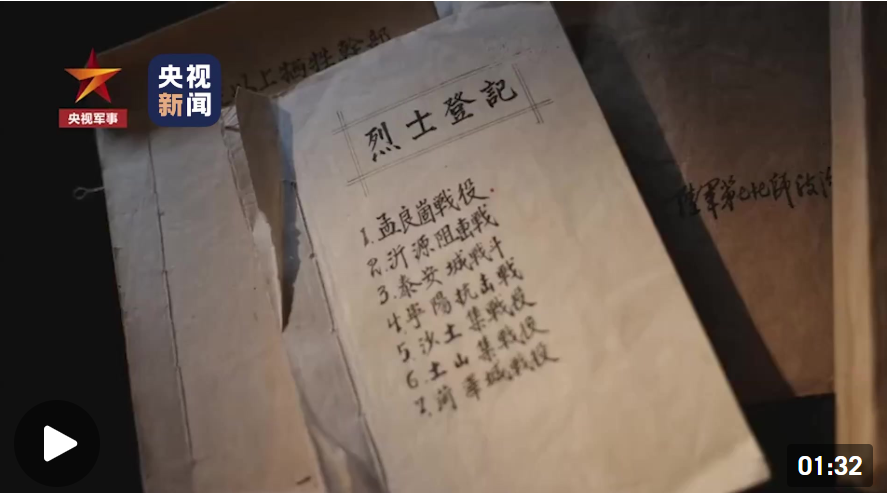 央视军事
央视
新闻
以上牺牲幹部
烈士登記
1.孟良崮戰役.
2.沂源阻擊戰
3.泰安城戰斗
4.寧陽抗击戰
5.沙土集戰役
6.土山集戰役
7.菏澤城戰役
師政治
01:32